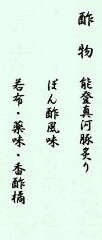 酢物　能登真河豚炙り
ぽん酢風味
若布・薬味・香酢橘